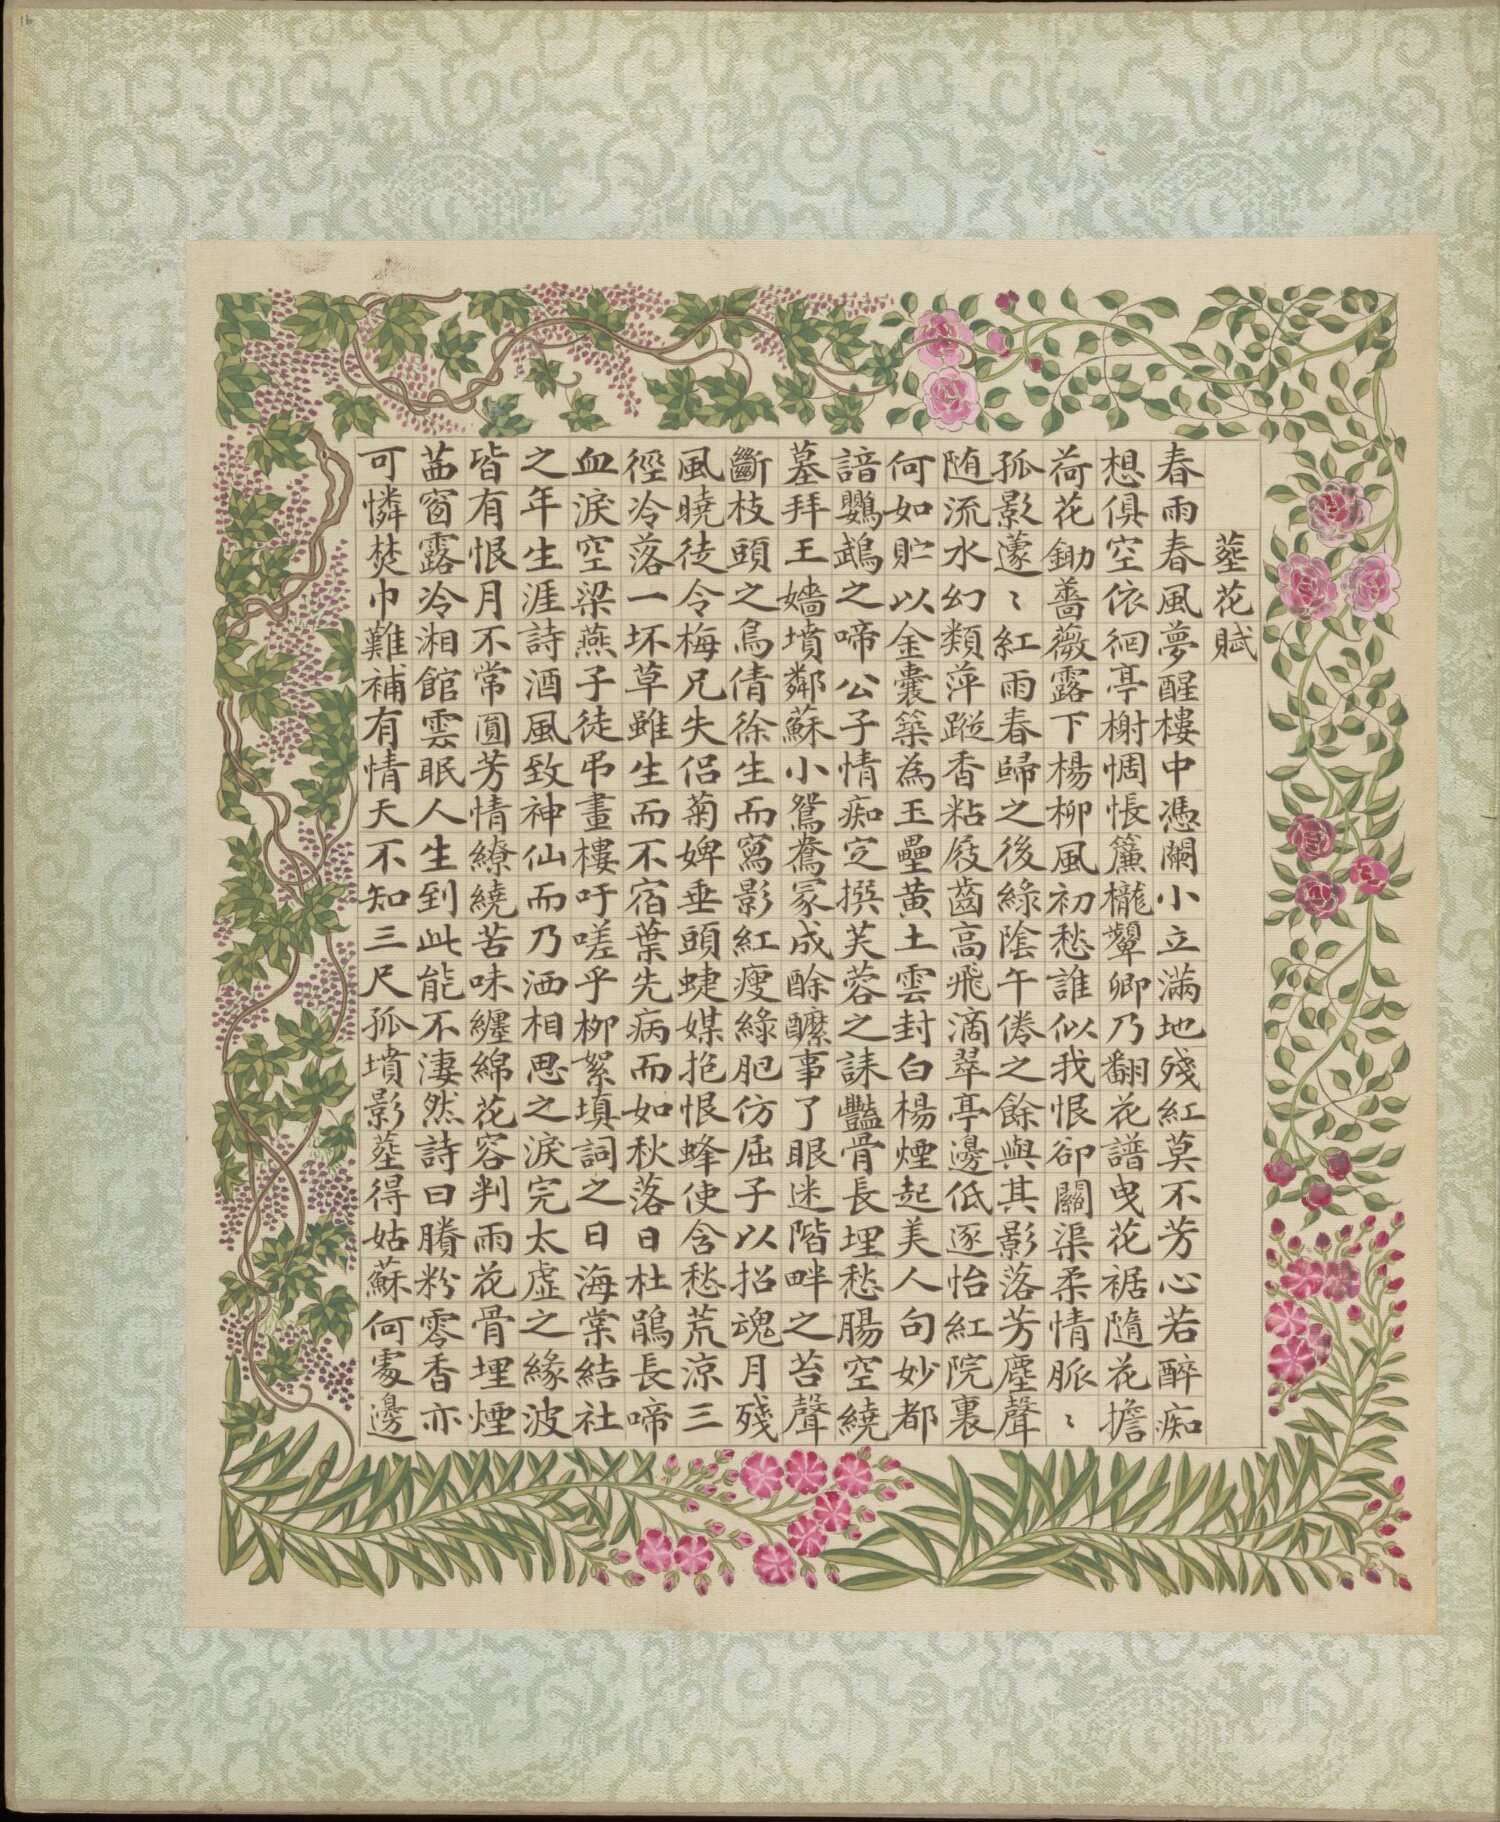 16
葬花賦
春雨春風夢醒樓中憑闌小立滿地殘紅莫不芳心若醉痴
想俱空依徊亭榭惆悵簾櫳顰卿乃翻花譜曳花裾隨花擔
荷花鋤薔薇露下楊柳風初愁誰似我恨卻關渠柔情脈〻
孤影蘧〻紅雨春歸之後綠陰午倦之餘與其影落芳塵聲
随流水幻類萍蹤香粘屐齒高飛滴翠亭邊低逐怡紅院裏
何如貯以金囊築為玉壘黃土雲封白楊煙起美人句妙都
諳鸚鵡之啼公子情痴定撰芙蓉之誄豔骨長埋愁腸空繞
墓拜王嬙墳鄰蘇小鴛鴦冢成酴醾事了眼迷階畔之苔聲
斷枝頭之鳥倩徐生而寫影紅瘦綠肥仿屈子以招魂月殘
風曉徒令梅兄失侣菊婢垂頭蜨媒抱恨蜂使含愁荒涼三
徑冷落一坏草雖生而不宿葉先病而如秋落日杜鵑長啼
血淚空梁燕子徒弔畫樓吁嗟乎柳絮填詞之日海棠結社
之年生涯詩酒風致神仙而乃洒相思之淚完太虛之緣波
皆有恨月不常圓芳情繚繞苦味纏綿花容判雨花骨埋煙
茜窗露冷湘館雲眠人生到此能不淒然詩曰賸粉零香亦
可憐焚巾難補有情天不知三尺孤墳影葬得姑蘇何處邊